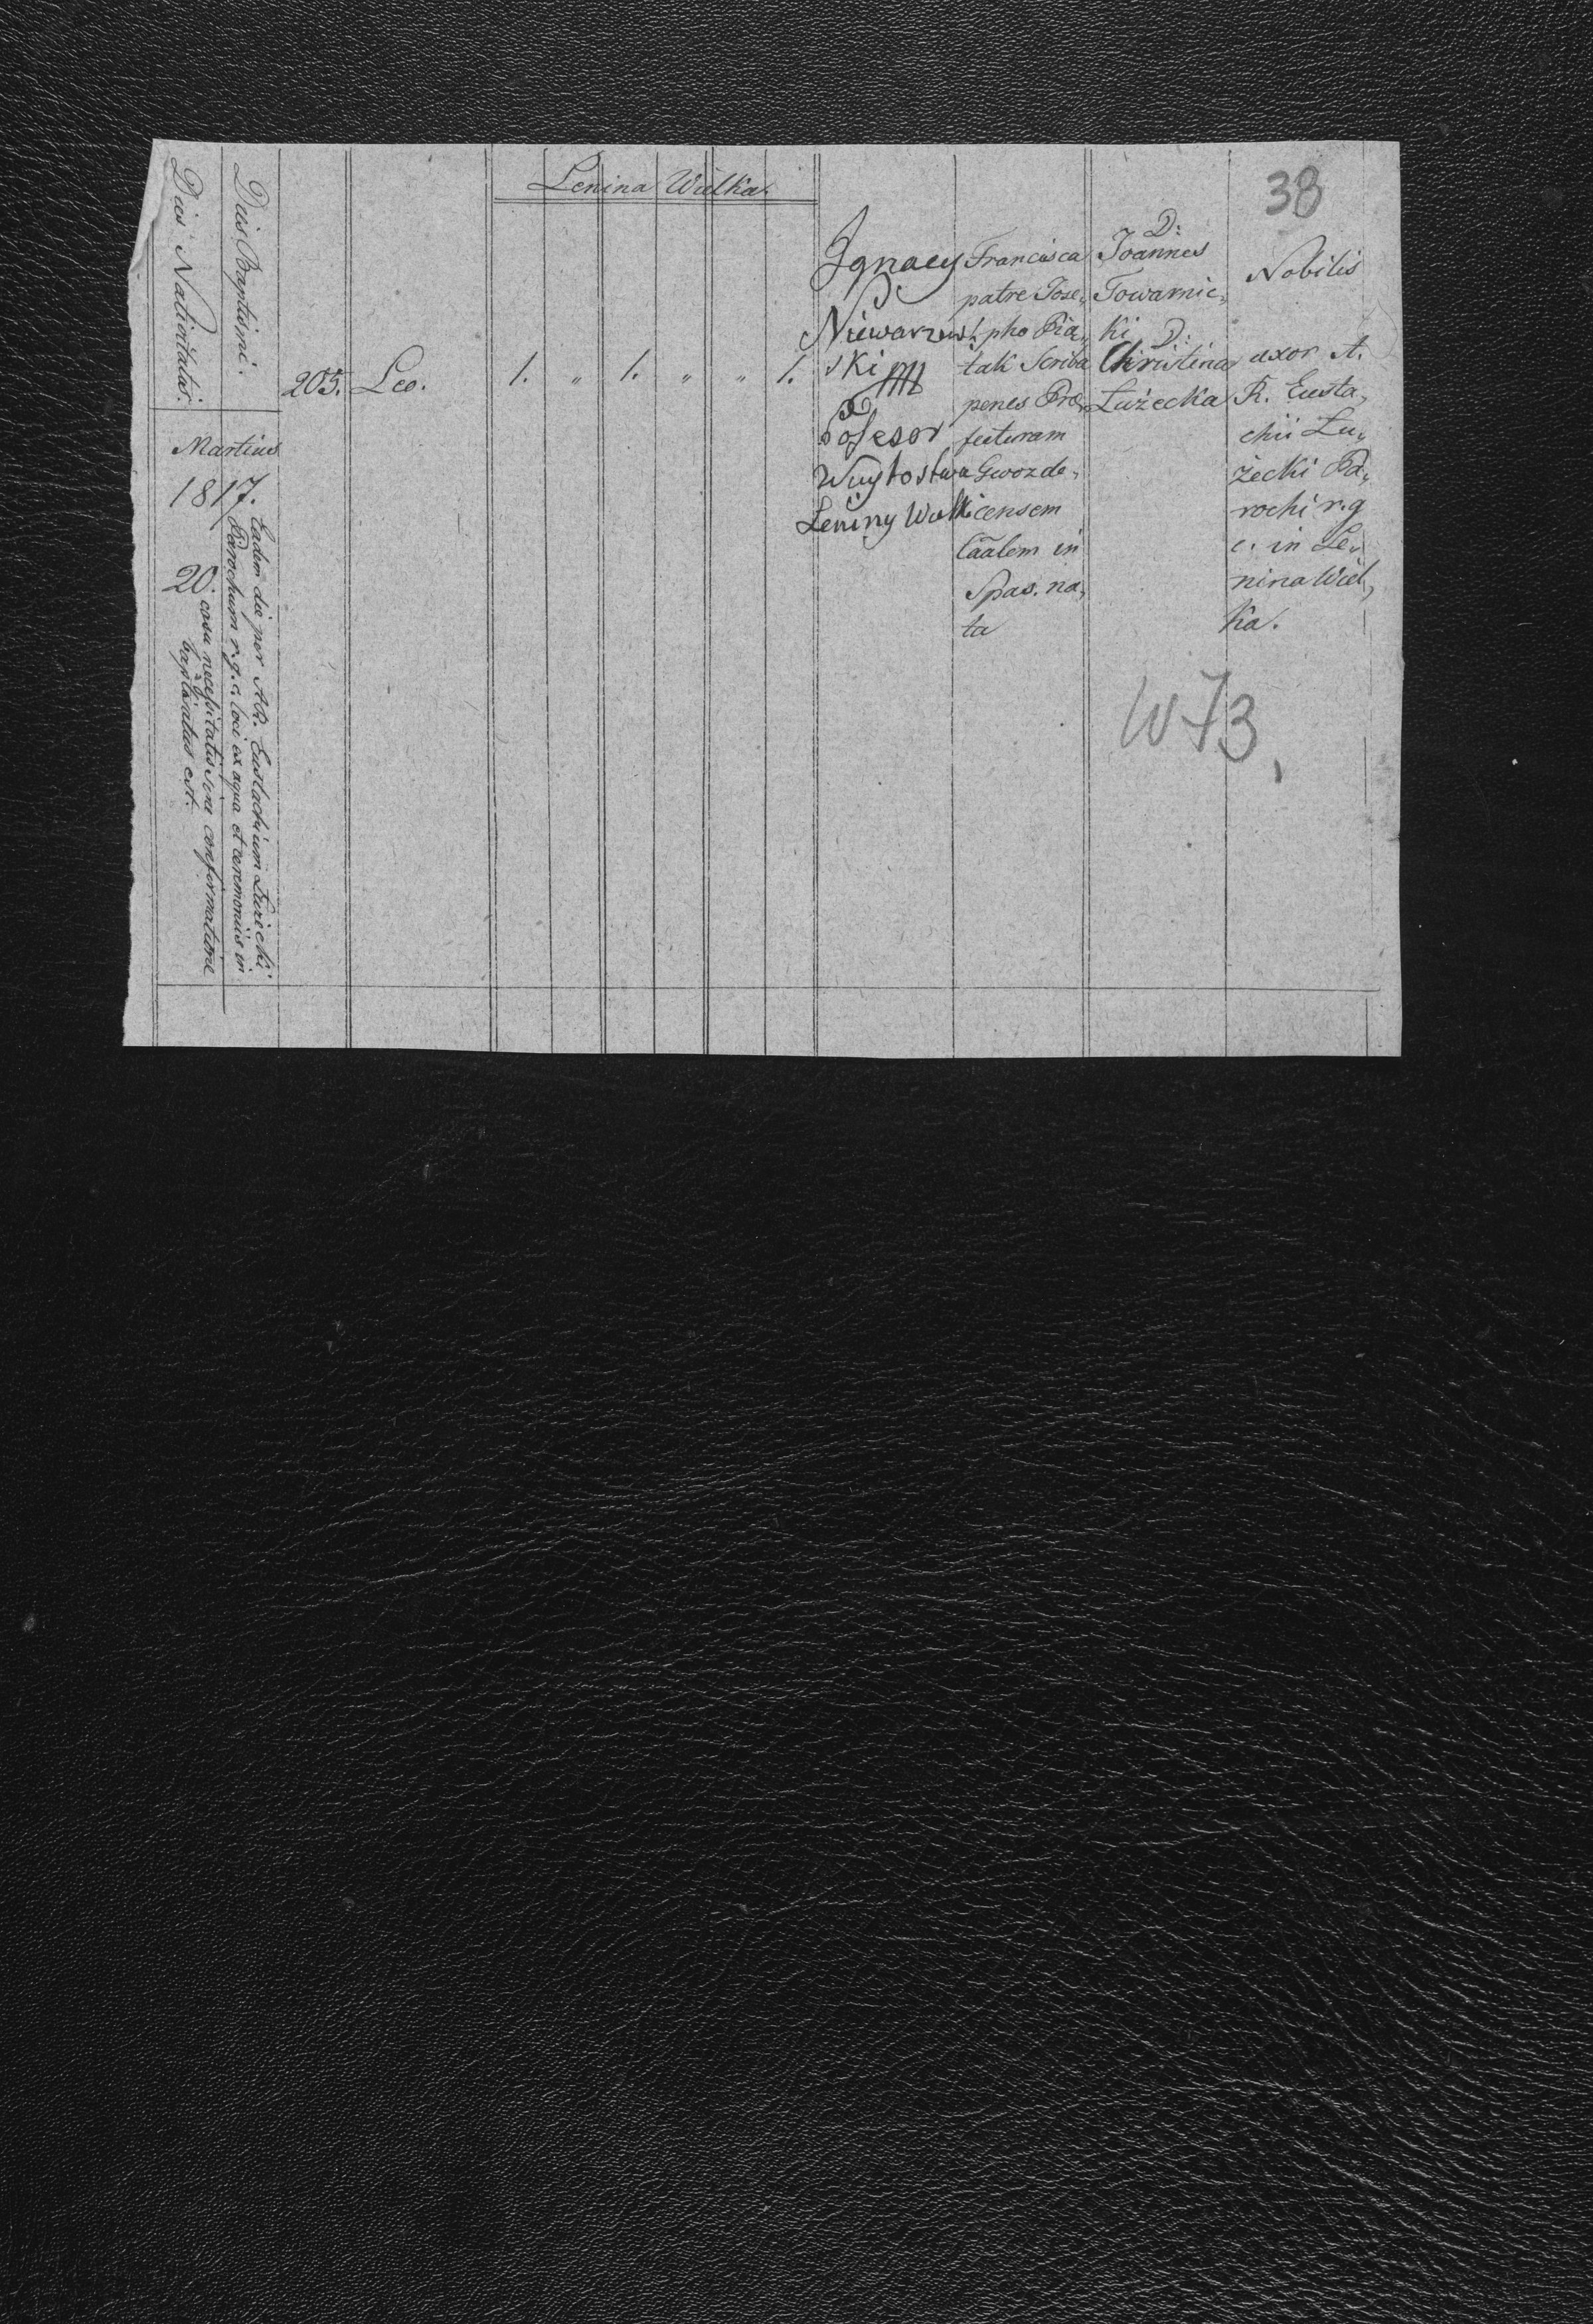 38
Lenina Wielka.
Dies Nativitatis.
Dies Baptismi.
Martius
1817.
20.
Eadem die per AR. Eustachium Łużecki
Parochum r.g.c. loci ex aqua et ceremoniis in
casu necessitatis sine confirmatione
baptisatus est.
205. Leo. 1. " 1. " " 1.
Ignacy
Niewarzew
ski
Posesor
Wuytostwa
Leniny Wielki
Francisca
patre Jose„
pho Pia„
tak Scriba
penes Præ„
fecturam
Gwozde„
censem
in
Spas. na„
ta
D:
Joannes
Towarnic„
ki
D:
Christina
Łużecka
Nobilis
uxor A.
R. Eusta„
chii Łu„
żecki Pa„
rochi r.g
c. in Le„
nina Wiel„
ka.
W73,